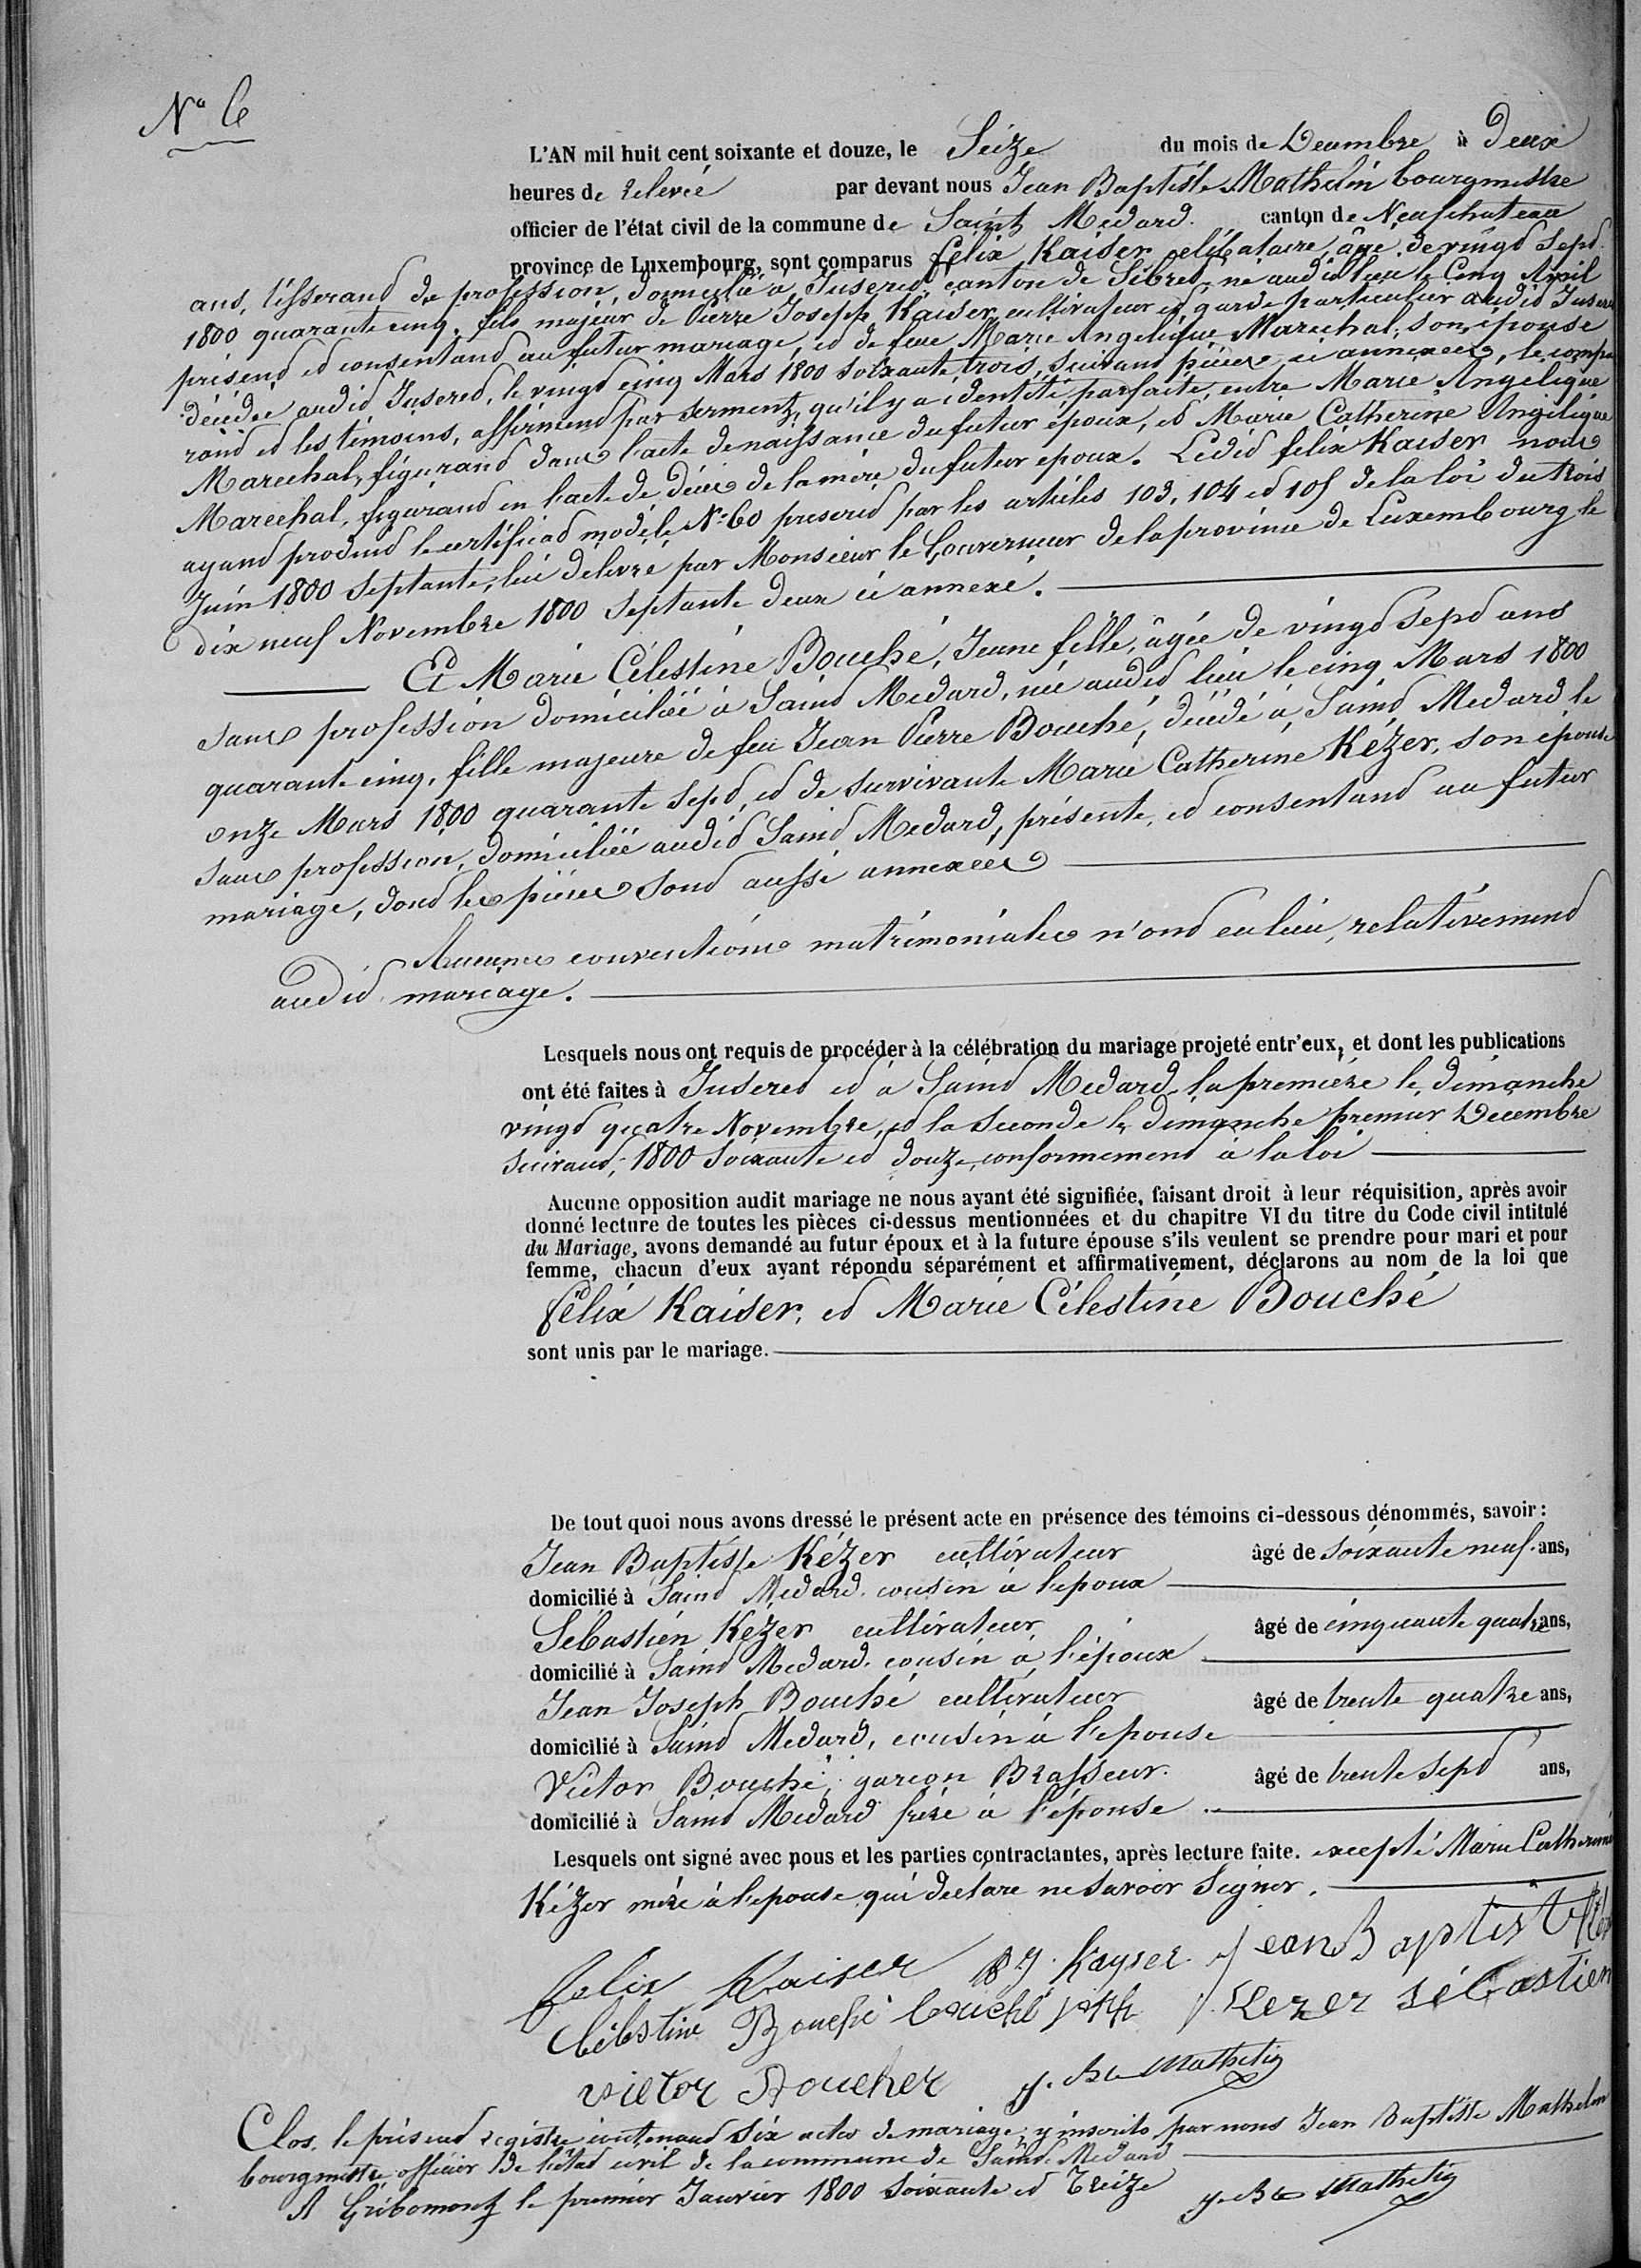 N° 6
L'AN mil huit cent soixante et douze, le Seize du mois de Decembre à Deux
heures de relevée par devant nous Jean Baptiste Mathelin bourgmestre
officier de l'état civil de la commune de Saint Medard. canton de Neufchateau
province de Luxembourg, sont comparus felix Kaiser, célibataire, âgé de vingt sept
ans, tisserand de profession, domicilié à Juseret canton de Sibret, né audit lieu le Cinq Avril
1800 quarante cinq, fils majeur de Pierre Joseph Kaiser cultivateur et garde particulier audit Juseret
présent et consentant au futur mariage, et de feue Marie Angelique Marechal, son épouse
décédée audit Juseret, le vingt cinq Mars 1800 soixante trois, suivant pièces ci annexées, le compa
rant et les témoins, affirment par serment, qu'il y a identité parfaite, entre Marie Angelique
Marechal, figurant dans l'acte de naissance du futur époux, et Marie Catherine Angélique
Marechal, figurant en l'acte de décès de la mère du futur epoux. Ledit felix Kaiser nous
ayant produit le certificat modèle N° 60 prescrit par les articles 103, 104 et 105 de la loi du trois
Juin 1800 septante, lui délivré par Monsieur le Gouverneur de la province de Luxembourg le
dix neuf Novembre 1800 septante deux ci annexé.
Et Marie Célestine Bouché, Jeune fille, âgée de vingt sept ans
sans profession domiciliée à Saint Medard, née audit lieu le cinq Mars 1800
quarante cinq, fille majeure de feu Jean Pierre Bouché, décédé à Saint Medard le
onze Mars 1800 quarante sept, et de survivante Marie Catherine Kézer, son épouse
sans profession, domiciliée audit Saint Medard, présente, et consentant au futur
mariage, dont les pièces sont aussi annexées
Aucunes conventions matrimoniales n'ont eu lieu, relativement
audit mariage.
Lesquels nous ont requis de procéder à la célébration du mariage projeté entr'eux, et dont les publications
ont été faites à Juseret et à Saint Medard, la première le dimanche
vingt quatre Novembre, et la seconde le dimanche premier Decembre
suivant, 1800 soixante et douze, conformement à la loi
Aucune opposition audit mariage ne nous ayant été signifiée, faisant droit à leur réquisition, après avoir
donné lecture de toutes les pièces ci-dessus mentionnées et du chapitre VI du titre du Code civil intitulé
du Mariage, avons demandé au futur époux et à la future épouse s'ils veulent se prendre pour mari et pour
femme, chacun d'eux ayant répondu séparément et affirmativement, déclarons au nom de la loi que
félix Kaiser, et Marie Célestine Bouché
sont unis par le mariage.
De tout quoi nous avons dressé le présent acte en présence des témoins ci-dessous dénommés, savoir :
Jean Baptiste Kézer cultivateur âgé de soixante neuf ans,
domicilié à Saint Medard. cousin à l'epoux
Sébastien Kézer cultivateur âgé de cinquante quatre ans,
domicilié à Saint Medard. cousin à l'époux
Jean Joseph Bouché cultivateur âgé de trente quatre ans,
domicilié à Saint Medard, cousin à l'epouse
Victor Bouché, garçon Brasseur. âgé de trente sept ans,
domicilié à Saint Medard frère à l'épouse
Lesquels ont signé avec nous et les parties contractantes, après lecture faite. excepté Marie Catherine
Kézer mère à l'epouse qui declare ne savoir signer.
felix Kaiser P J. Kayser. Jean Baptist
Célestine Bouché bouché jsph J. Kezer sébastien
victor Boucher J. Bte Mathelin
Clos. le présent registre contenant six actes de mariage, y inscrits par nous Jean Baptiste Mathelin
bourgmestre officier de l'état civil de la commune de Saint Medard
A Gribomont le premier Janvier 1800 soixante et Treize J. Bte Mathelin